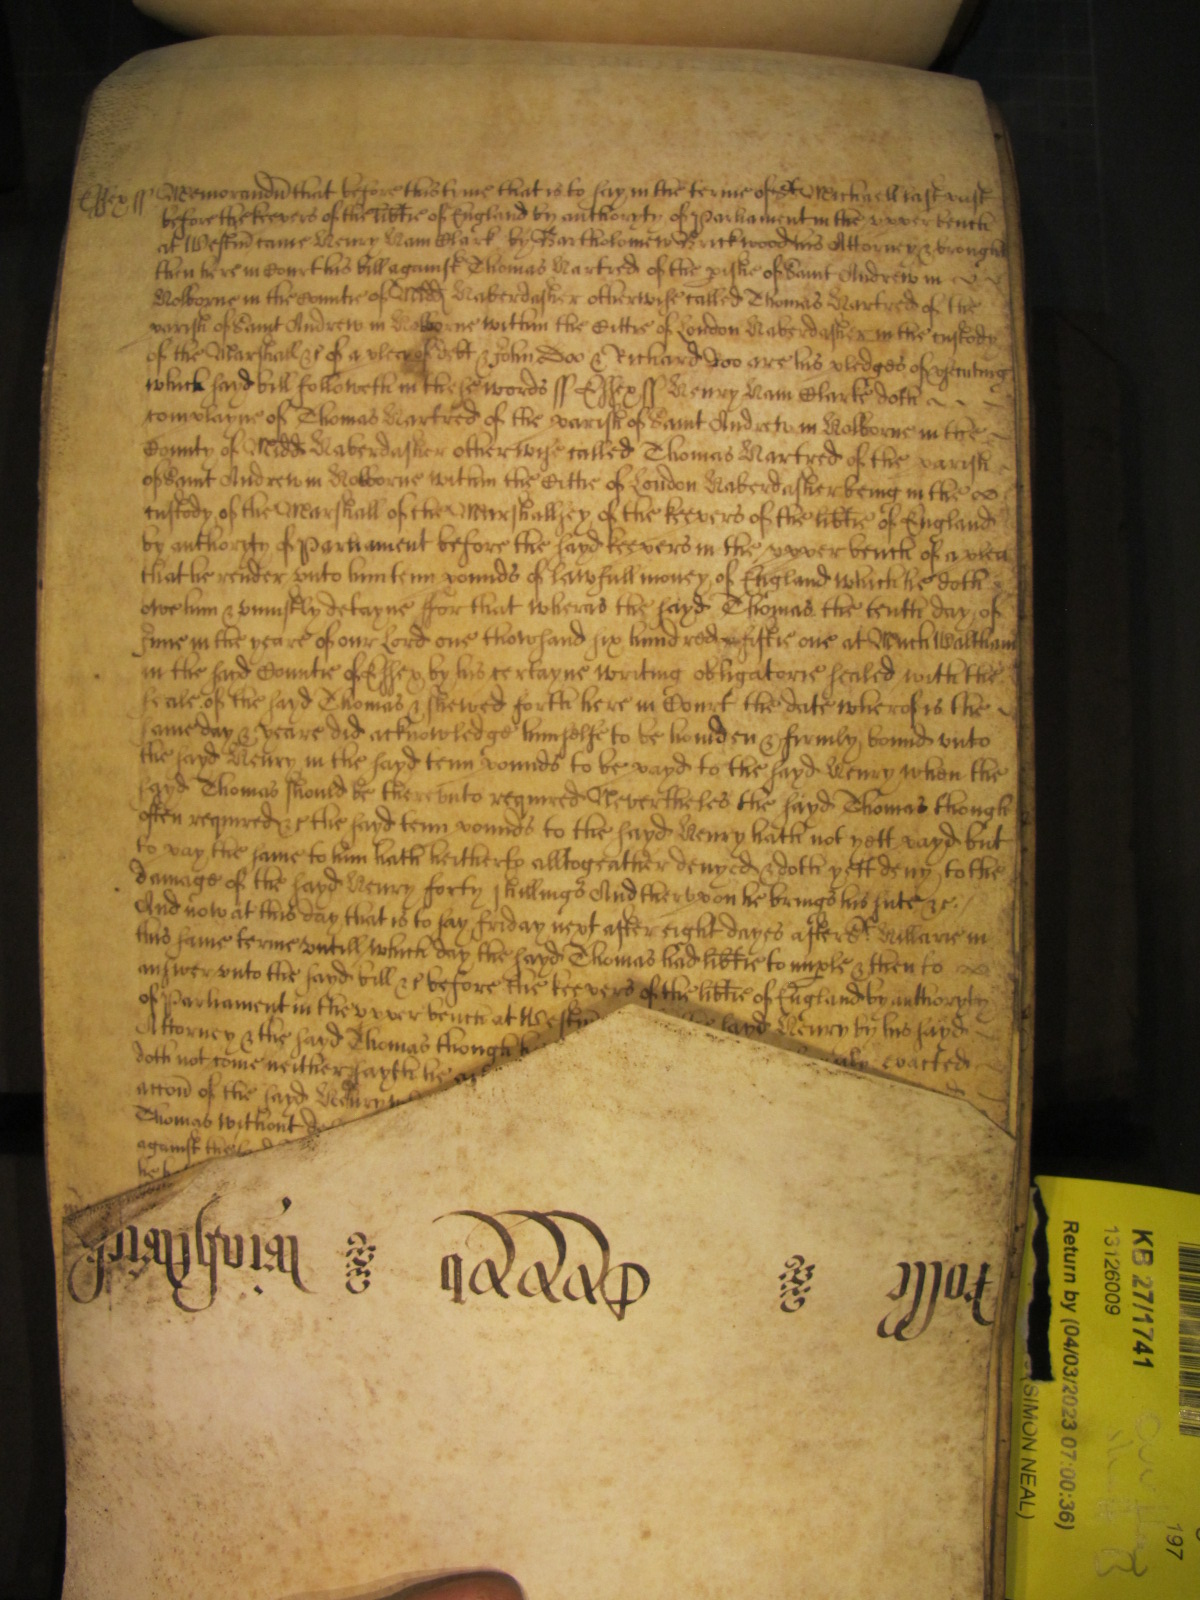 Essex ss Memorandũ that before this time that is to say in the terme of St Michaell last past
before the keepers of the libtie of England by authoryty of Parliament in the vpper bench
at Westm̃ came Henry Ham Clark by Bartholomew Brickwood his Attorney & brought
then here in Court his bill against Thomas Hartred of the pishe of Saint Andrew in
Holborne in the Countie of Midd Haberdasher otherwise called Thomas Hartred of the
parish of Saint Andrew in Holborne within the Cittie of London Haberdasher in the custody
of the Marshall &c of a plea of debt & John Doo & Richard Roo are his pledges of psecuting
which sayd bill followeth in these words ss Essex ss Henry Ham Clarke doth
complayne of Thomas Hartred of the parish of Saint Andrew in Holborne in the
County of Midd Haberdasher otherwise called Thomas Hartred of the parish
of Saint Andrew in Holborne within the Cittie of London Haberdasher being in the
custody of the Marshall of the Marshallsey of the keepers of the libtie of England
by authoryty of Parliament before the sayd keepers in the vpper bench of a plea
that he render vnto him tenn pounds of lawfull money of England which he doth
owe him & vniustly detayne ffor that wheras the sayd Thomas the tenth day of
June in the yeare of our Lord one thowsand six hundred fiftie one at Much Waltham
in the said Countie of Essex by his certayne writing obligatorie sealed with the
seale of the sayd Thomas & shewed forth here in Court the date wherof is the
same day & yeare did acknowledge himselfe to be houlden & firmly bound vnto
the sayd Henry in the sayd tenn pounds to be payd to the sayd Henry when the
sayd Thomas should be therevnto required Neverthelesse the sayd Thomas though
often required &c the sayd tenn pounds to the sayd Henry hath not yett payd but
to pay the same to him hath heitherto alltogeather denyed & doth yett deny to the
damage of the sayd Henry forty shillings And therevpon he brings his sute &c
And now at this day that is to say friday next after eight dayes after St Hillarie in
this same terme vntill which day the sayd Thomas had libtie to imple & then to
answer vnto the sayd bill &c before the keepers of the libtie of England by authoryty
of Parliament in the vpper bench at Westm̃ the sayd Henry by his sayd
Attorney & the sayd Thomas though exacted
doth not come neither sayth he
accon of the sayd Henry
Thomas without
against the
he
Rolle
CCCCxxxv